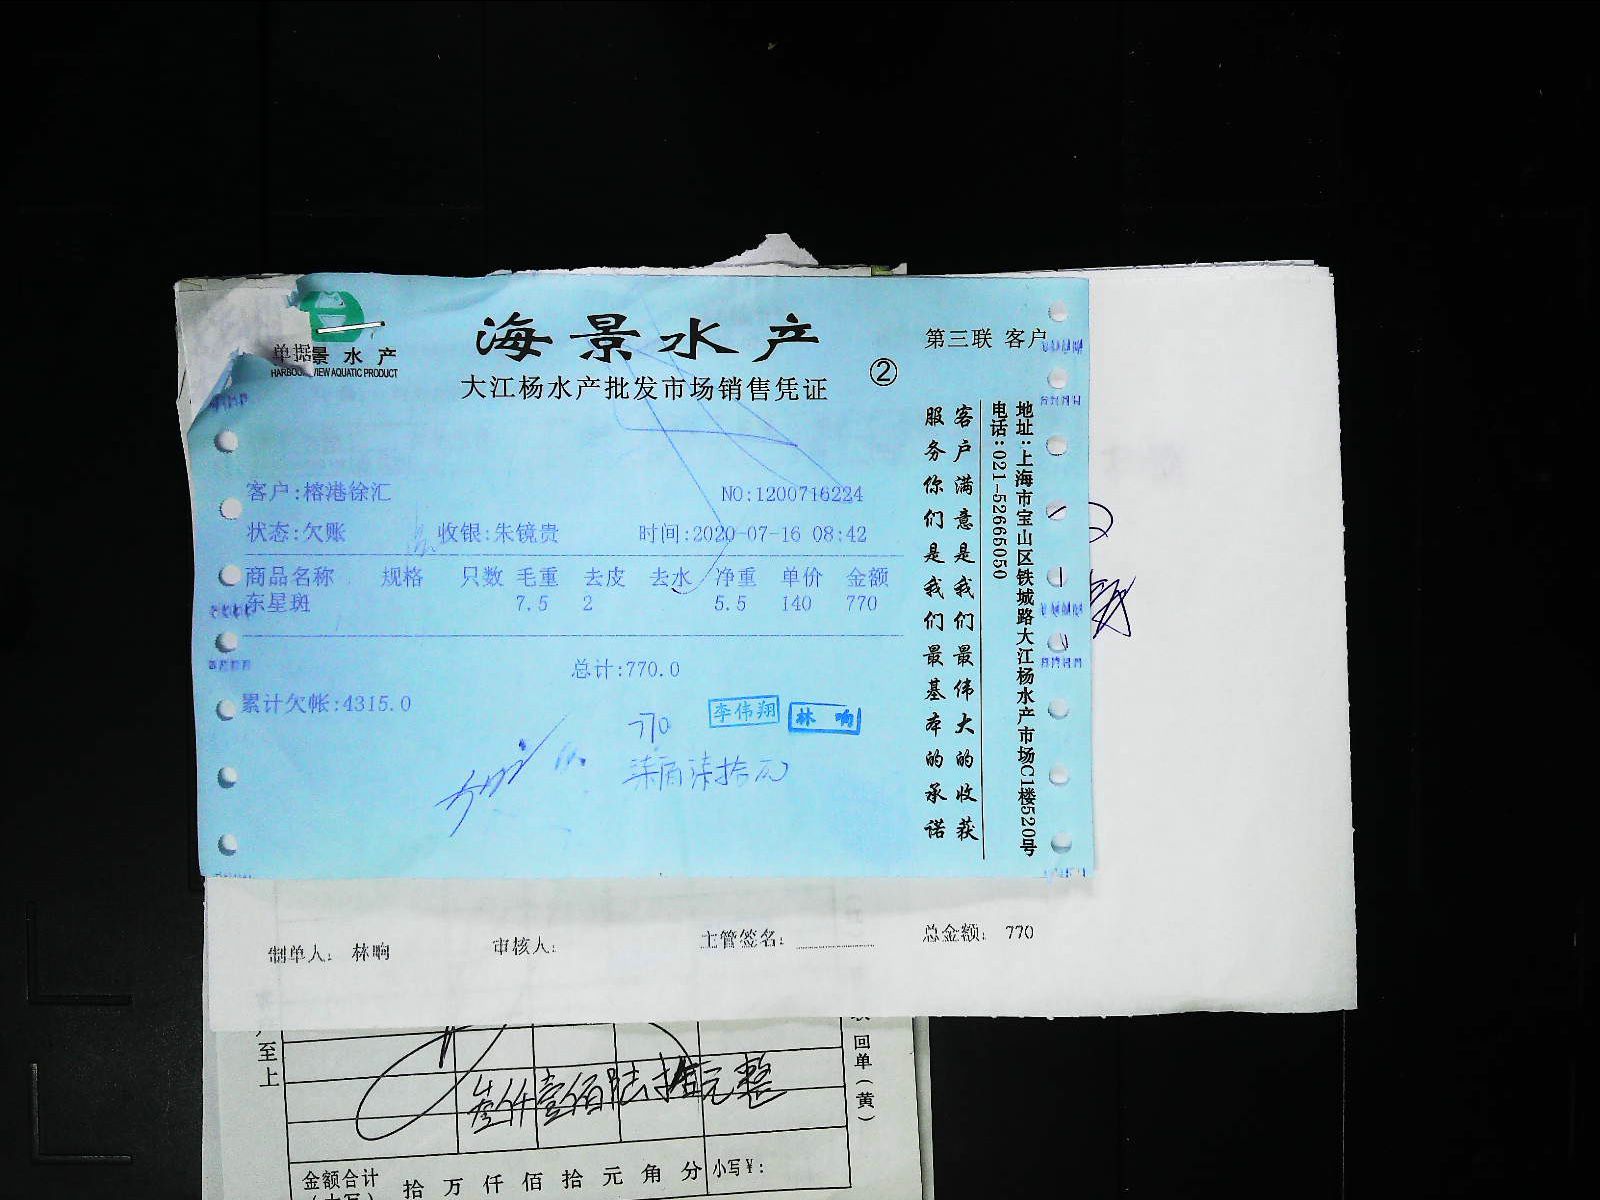 海景水产
单据景水产
HARBOUR VIEW AQUATIC PRODUCT
大江杨水产批发市场销售凭证
②
第三联 客户
客户:榕港徐汇
NO:1200716224
状态:欠账
收银:朱镜贵
时间:2020-07-16 08:42
商品名称 规格 只数 毛重 去皮 去水 净重 单价 金额
东星斑 7.5 2 5.5 140 770
总计:770.0
累计欠帐:4315.0
李伟翔
林响
770
柒佰柒拾元
客户满意是我们最伟大的收获
服务你们是我们最基本的承诺
地址:上海市宝山区铁城路大江杨水产市场C1楼520号
电话:021-52665050
制单人: 林响
审核人:
主管签名:
总金额: 770
至上
回单(黄)
叁仟壹佰陆拾元整
金额合计
拾万仟佰拾元角分
小写¥: